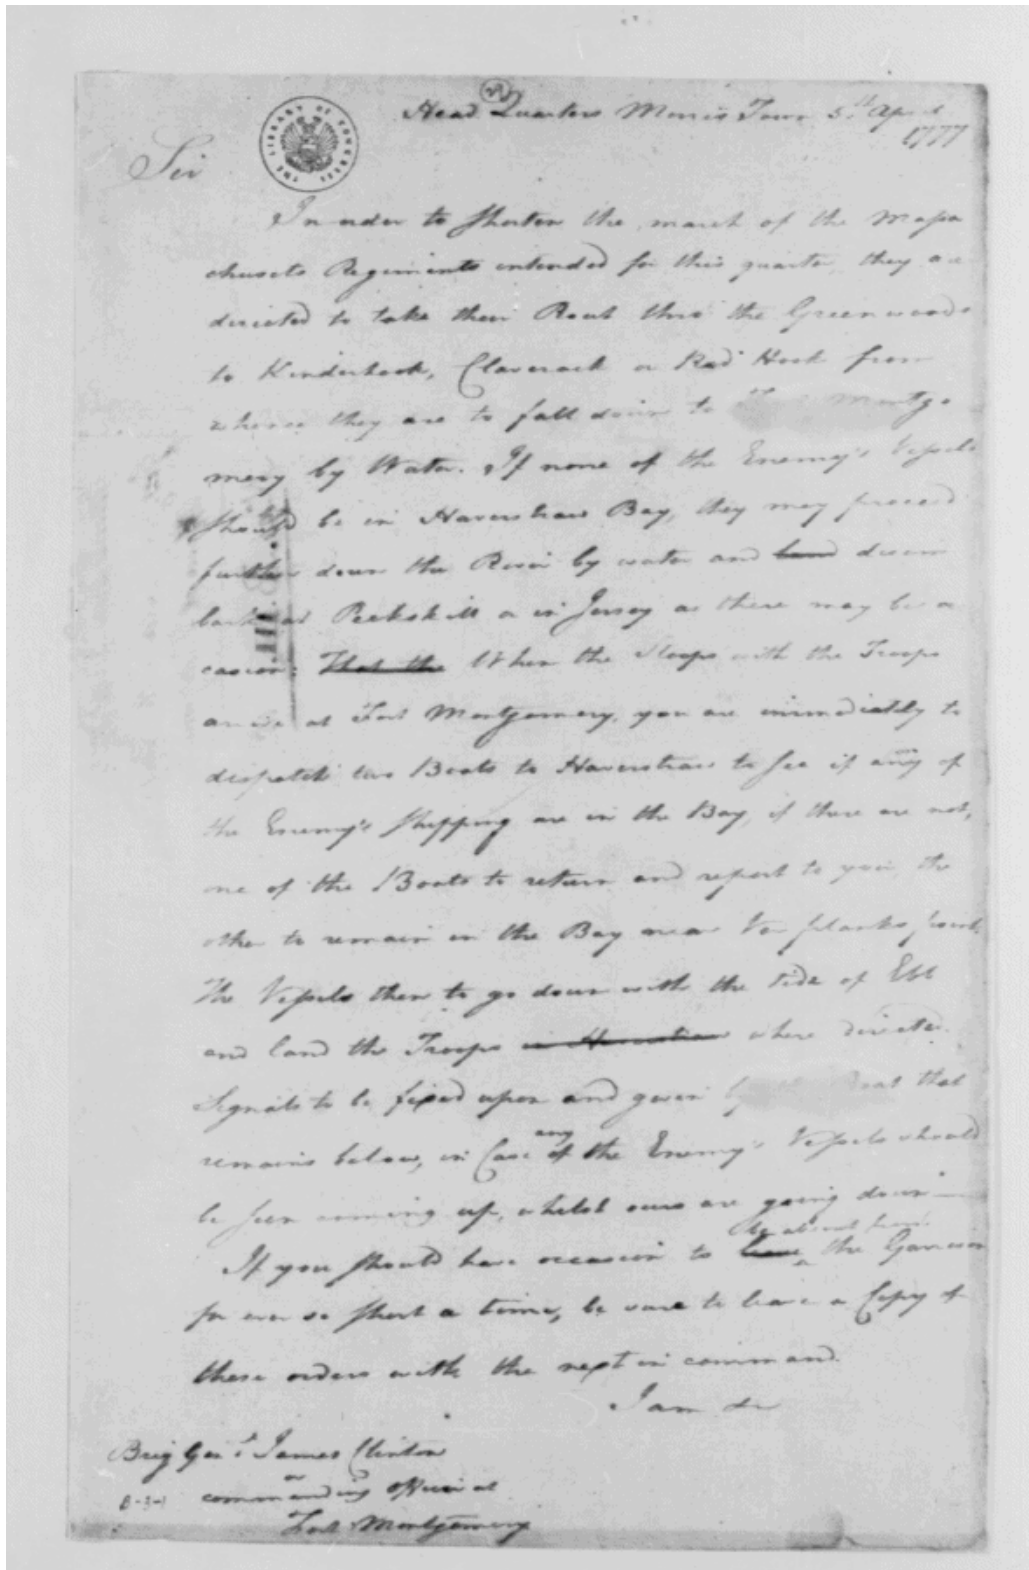 Head Quarters Morris Town 5th April
1777
THE LIBRARY OF CONGRESS
Sir
In order to shorten the march of the Massa
chusets Regiments intended for this quarter, they are
directed to take their Rout thro the Greenwoods
to Kinderhook, Claverack or Red Hook from
whence they are to fall down to Montgo
mery by Water. If none of the Enemy's Vessels
should be in Haverstraw Bay, they may proceed
further down the River by water and land disem
bark at Peekskill or in Jersey as there may be oc
casion: That the When the Sloops with the Troops
arrive at Fort Montgomery, you are immediately to
dispatch two Boats to Haverstraw to see if any of
the Enemy's Shipping are in the Bay, if there are not,
one of the Boats to return and report to you, the
other to remain in the Bay near Ver planks point.
The Vessels then to go down with the tide of Ebb
and land the Troops in Haverstraw where directed.
Signals to be fixed upon and given by Boat that
remains below, in Case any of the Enemy's Vessels should
be seen coming up, whilst ours are going down
be absent from
If you should have occasion to leave the Garrison
for ever so short a time, be sure to leave a Copy of
these orders with the next in command.
I am &c
Brig Genl James Clinton
or
commanding Officer at
Fort Montgomery
B-3-1